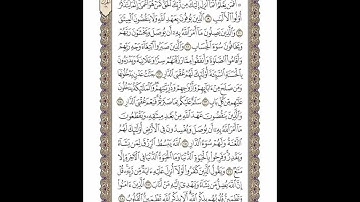 ۞ أَفَمَن يَعْلَمُ أَنَّمَآ أُنزِلَ إِلَيْكَ مِن رَّبِّكَ ٱلْحَقُّ كَمَنْ هُوَ أَعْمَىٰٓ إِنَّمَا يَتَذَكَّرُ
أُو۟لُوا۟ ٱلْأَلْبَٰبِ ١٩ ٱلَّذِينَ يُوفُونَ بِعَهْدِ ٱللَّهِ وَلَا يَنقُضُونَ ٱلْمِيثَٰقَ
٢٠ وَٱلَّذِينَ يَصِلُونَ مَآ أَمَرَ ٱللَّهُ بِهِۦٓ أَن يُوصَلَ وَيَخْشَوْنَ رَبَّهُمْ
وَيَخَافُونَ سُوٓءَ ٱلْحِسَابِ ٢١ وَٱلَّذِينَ صَبَرُوا۟ ٱبْتِغَآءَ وَجْهِ رَبِّهِمْ
وَأَقَامُوا۟ ٱلصَّلَوٰةَ وَأَنفَقُوا۟ مِمَّا رَزَقْنَٰهُمْ سِرًّا وَعَلَانِيَةً وَيَدْرَءُونَ
بِٱلْحَسَنَةِ ٱلسَّيِّئَةَ أُو۟لَٰٓئِكَ لَهُمْ عُقْبَى ٱلدَّارِ ٢٢ جَنَّٰتُ عَدْنٍ يَدْخُلُونَهَا
وَمَن صَلَحَ مِنْ ءَابَآئِهِمْ وَأَزْوَٰجِهِمْ وَذُرِّيَّٰتِهِمْ وَٱلْمَلَٰٓئِكَةُ يَدْخُلُونَ
عَلَيْهِم مِّن كُلِّ بَابٍ ٢٣ سَلَٰمٌ عَلَيْكُم بِمَا صَبَرْتُمْ فَنِعْمَ عُقْبَى ٱلدَّارِ ٢٤
وَٱلَّذِينَ يَنقُضُونَ عَهْدَ ٱللَّهِ مِنۢ بَعْدِ مِيثَٰقِهِۦ وَيَقْطَعُونَ
مَآ أَمَرَ ٱللَّهُ بِهِۦٓ أَن يُوصَلَ وَيُفْسِدُونَ فِى ٱلْأَرْضِ أُو۟لَٰٓئِكَ لَهُمُ
ٱللَّعْنَةُ وَلَهُمْ سُوٓءُ ٱلدَّارِ ٢٥ ٱللَّهُ يَبْسُطُ ٱلرِّزْقَ لِمَن يَشَآءُ
وَيَقْدِرُ وَفَرِحُوا۟ بِٱلْحَيَوٰةِ ٱلدُّنْيَا وَمَا ٱلْحَيَوٰةُ ٱلدُّنْيَا فِى ٱلْءَاخِرَةِ إِلَّا
مَتَٰعٌ ٢٦ وَيَقُولُ ٱلَّذِينَ كَفَرُوا۟ لَوْلَآ أُنزِلَ عَلَيْهِ ءَايَةٌ مِّن رَّبِّهِۦ قُلْ
إِنَّ ٱللَّهَ يُضِلُّ مَن يَشَآءُ وَيَهْدِىٓ إِلَيْهِ مَنْ أَنَابَ ٢٧ ٱلَّذِينَ ءَامَنُوا۟
وَتَطْمَئِنُّ قُلُوبُهُم بِذِكْرِ ٱللَّهِ أَلَا بِذِكْرِ ٱللَّهِ تَطْمَئِنُّ ٱلْقُلُوبُ ٢٨